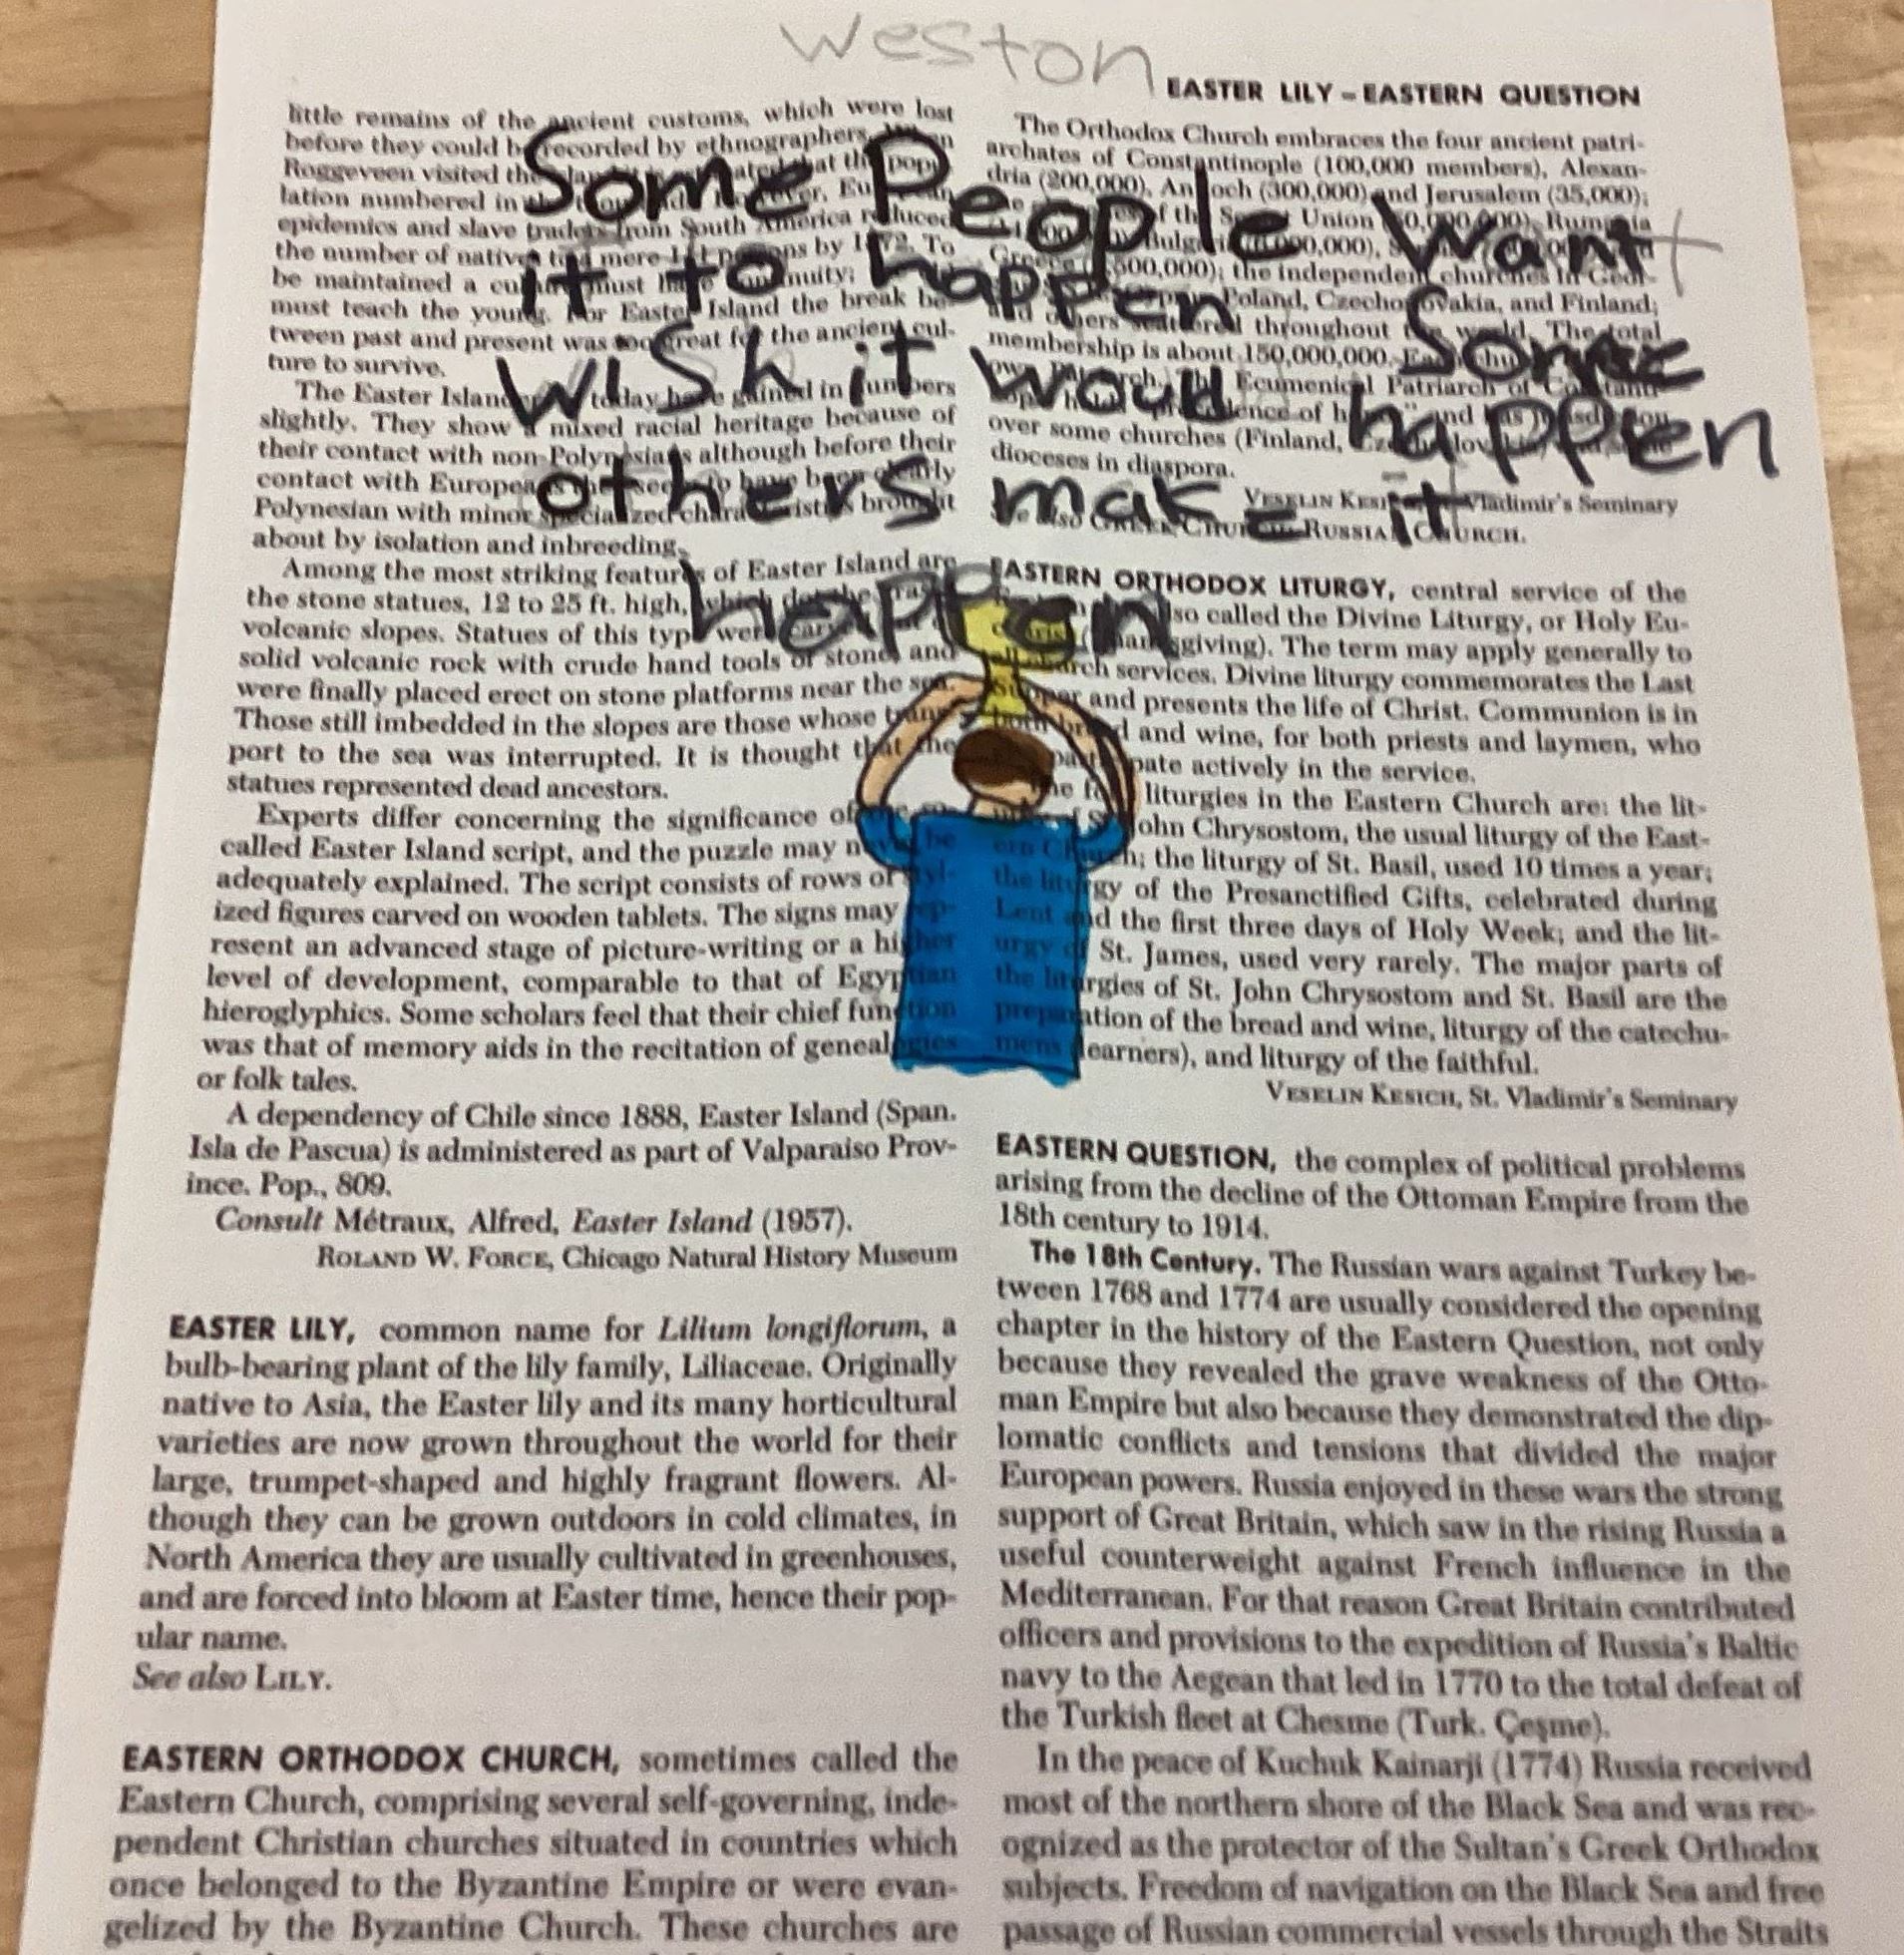 weston
EASTER LILY – EASTERN QUESTION
Some People Want
it to happen Some
wish it would happen
others make it
happen
little remains of the ancient customs, which were lost
before they could be recorded by ethnographers.
Roggeveen visited the that the popu-
lation numbered in
epidemics and slave traders from South America reduced
the number of natives to a mere persons by To
be maintained a must
must teach the young. For Easter Island the break be-
tween past and present was too great for the ancient cul-
ture to survive.
The Easter today have gained in numbers
slightly. They show a mixed racial heritage because of
their contact with non-Polynesians although before their
contact with Europeans to have been clearly
Polynesian with minor specialized characteristics brought
about by isolation and inbreeding.
Among the most striking features of Easter Island are
the stone statues, 12 to 25 ft. high,
volcanic slopes. Statues of this type were
solid volcanic rock with crude hand tools of stone, and
were finally placed erect on stone platforms near the sea.
Those still imbedded in the slopes are those whose trans-
port to the sea was interrupted. It is thought that the
statues represented dead ancestors.
Experts differ concerning the significance of
called Easter Island script, and the puzzle may never be
adequately explained. The script consists of rows of styl-
ized figures carved on wooden tablets. The signs may rep-
resent an advanced stage of picture-writing or a higher
level of development, comparable to that of Egyptian
hieroglyphics. Some scholars feel that their chief function
was that of memory aids in the recitation of genealogies
or folk tales.
A dependency of Chile since 1888, Easter Island (Span.
Isla de Pascua) is administered as part of Valparaiso Prov-
ince. Pop., 809.
Consult Métraux, Alfred, Easter Island (1957).
ROLAND W. FORCE, Chicago Natural History Museum
EASTER LILY, common name for Lilium longiflorum, a
bulb-bearing plant of the lily family, Liliaceae. Originally
native to Asia, the Easter lily and its many horticultural
varieties are now grown throughout the world for their
large, trumpet-shaped and highly fragrant flowers. Al-
though they can be grown outdoors in cold climates, in
North America they are usually cultivated in greenhouses,
and are forced into bloom at Easter time, hence their pop-
ular name.
See also LILY.
EASTERN ORTHODOX CHURCH, sometimes called the
Eastern Church, comprising several self-governing, inde-
pendent Christian churches situated in countries which
once belonged to the Byzantine Empire or were evan-
gelized by the Byzantine Church. These churches are
The Orthodox Church embraces the four ancient patri-
archates of Constantinople (100,000 members), Alexan-
dria (200,000), Antioch (300,000) and Jerusalem (35,000);
of the Soviet Union Rumania
Bulgaria
Greece the independent churches in Geor-
Poland, Czechoslovakia, and Finland;
and others scattered throughout the world. The total
membership is about 150,000,000.
Ecumenical Patriarch of
and
over some churches (Finland,
dioceses in diaspora.
VESELIN Vladimir's Seminary
See also GREEK CHURCH; RUSSIAN CHURCH.
EASTERN ORTHODOX LITURGY, central service of the
also called the Divine Liturgy, or Holy Eu-
charist (thanksgiving). The term may apply generally to
all church services. Divine liturgy commemorates the Last
Supper and presents the life of Christ. Communion is in
both bread and wine, for both priests and laymen, who
participate actively in the service.
The liturgies in the Eastern Church are: the lit-
urgy of St. John Chrysostom, the usual liturgy of the East-
ern Church; the liturgy of St. Basil, used 10 times a year;
the liturgy of the Presanctified Gifts, celebrated during
Lent and the first three days of Holy Week; and the lit-
urgy of St. James, used very rarely. The major parts of
the liturgies of St. John Chrysostom and St. Basil are the
preparation of the bread and wine, liturgy of the catechu-
mens (learners), and liturgy of the faithful.
VESELIN KESICH, St. Vladimir's Seminary
EASTERN QUESTION, the complex of political problems
arising from the decline of the Ottoman Empire from the
18th century to 1914.
The 18th Century. The Russian wars against Turkey be-
tween 1768 and 1774 are usually considered the opening
chapter in the history of the Eastern Question, not only
because they revealed the grave weakness of the Otto-
man Empire but also because they demonstrated the dip-
lomatic conflicts and tensions that divided the major
European powers. Russia enjoyed in these wars the strong
support of Great Britain, which saw in the rising Russia a
useful counterweight against French influence in the
Mediterranean. For that reason Great Britain contributed
officers and provisions to the expedition of Russia's Baltic
navy to the Aegean that led in 1770 to the total defeat of
the Turkish fleet at Chesme (Turk. Çeşme).
In the peace of Kuchuk Kainarji (1774) Russia received
most of the northern shore of the Black Sea and was rec-
ognized as the protector of the Sultan's Greek Orthodox
subjects. Freedom of navigation on the Black Sea and free
passage of Russian commercial vessels through the Straits